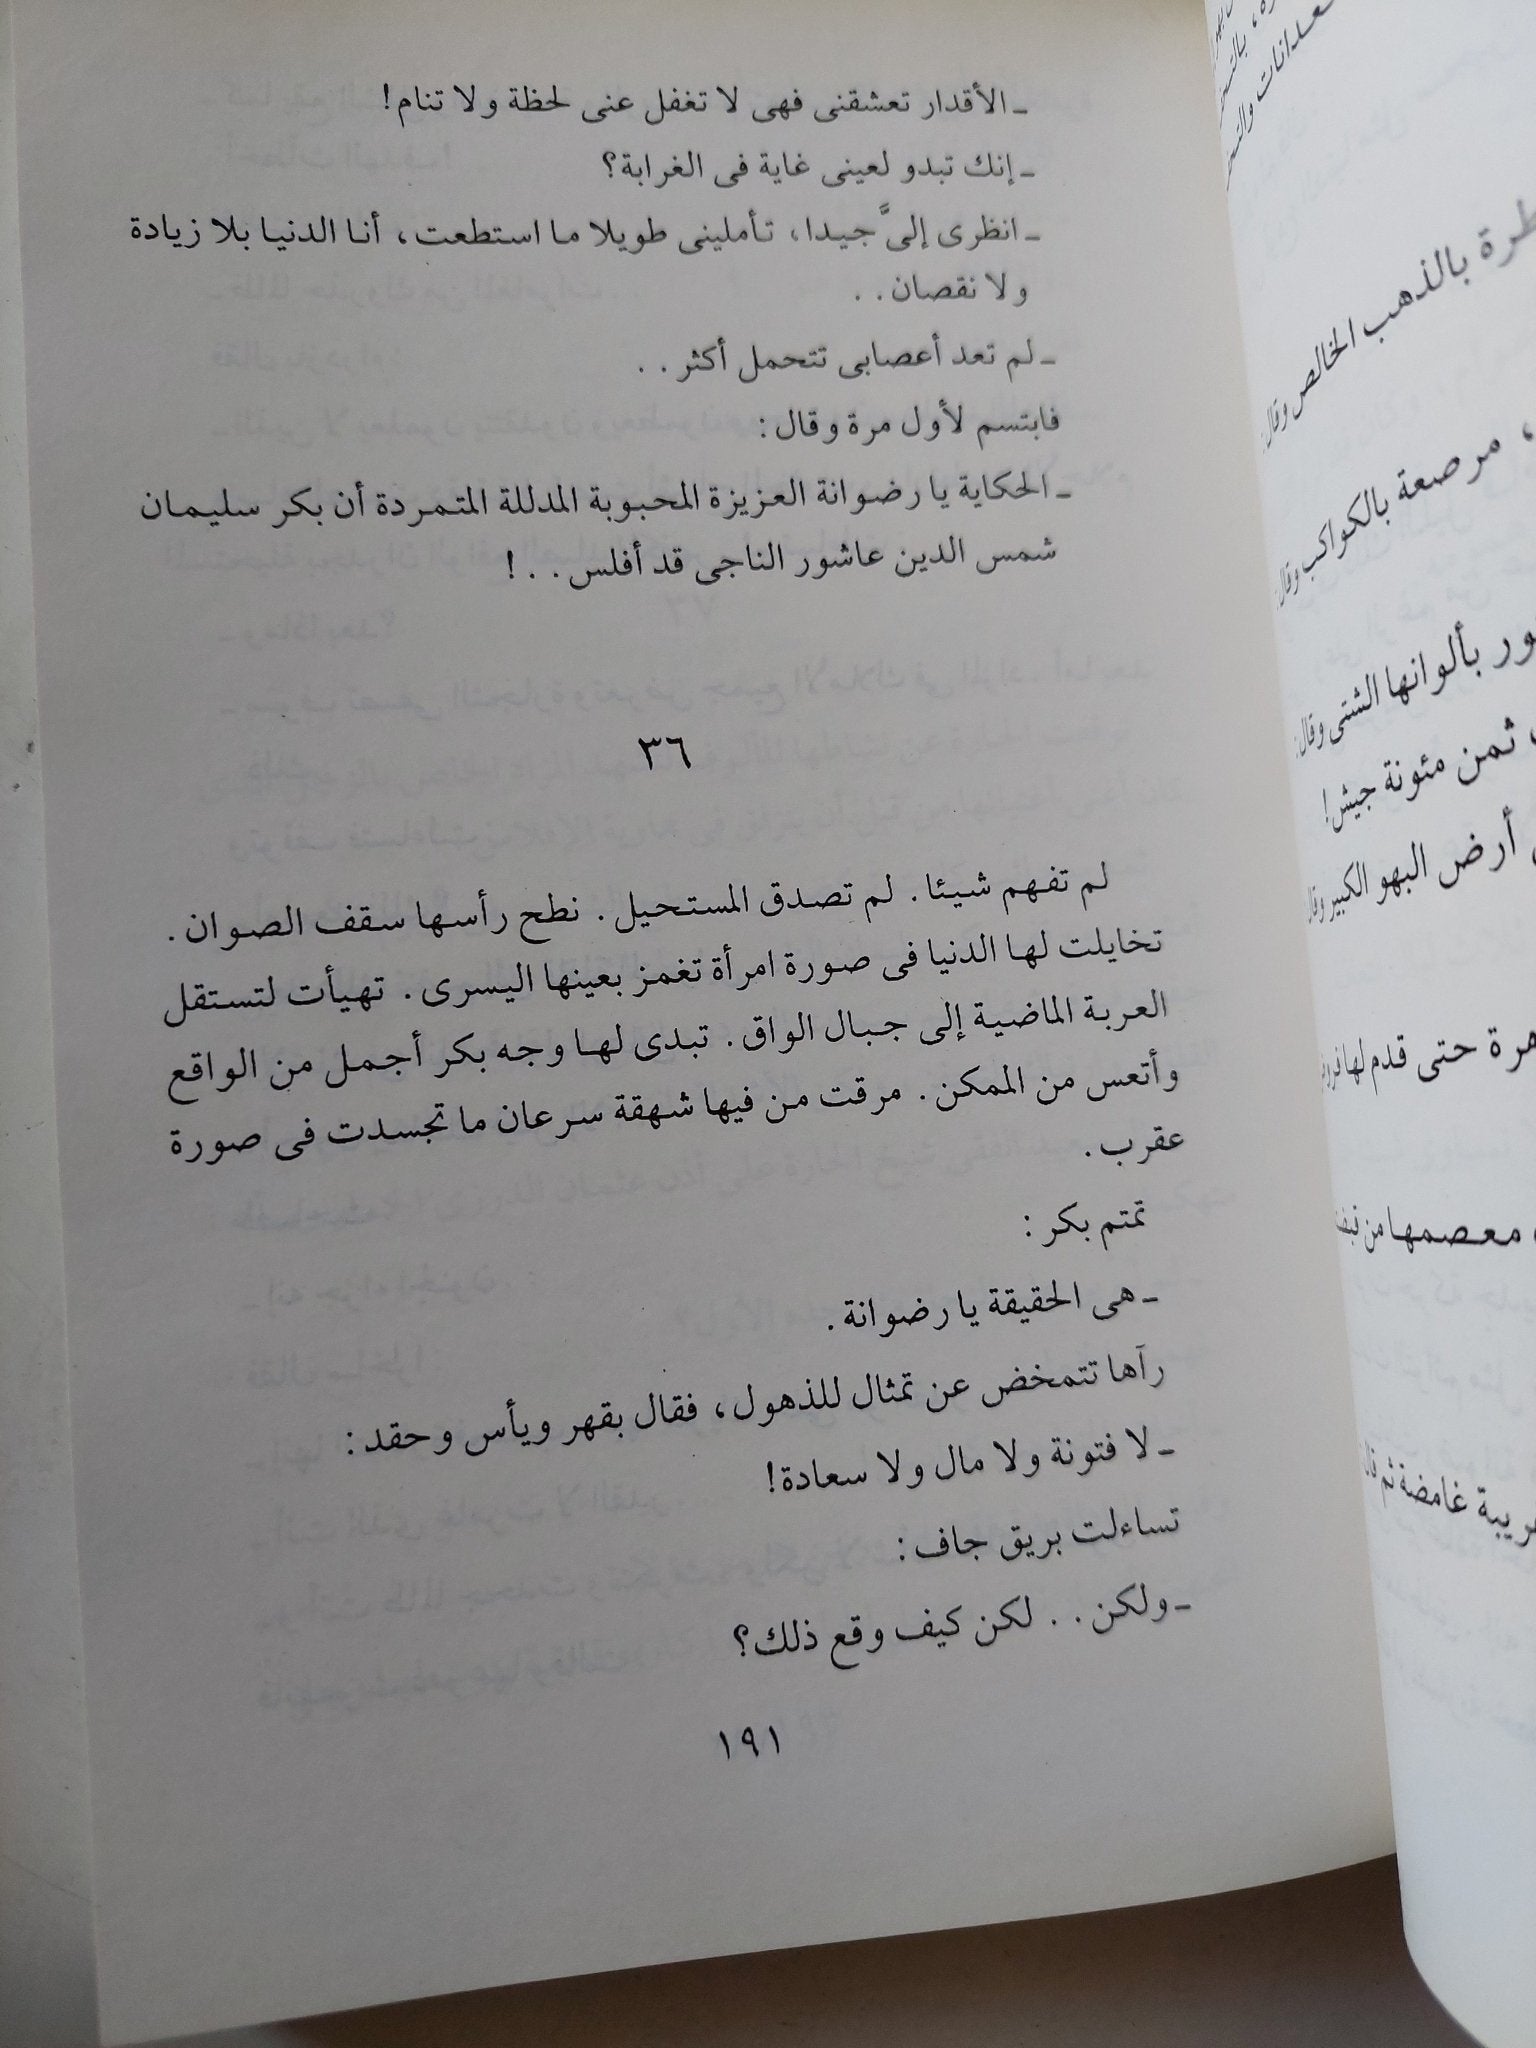 ـ الأقدار تعشقنى فهى لا تغفل عنى لحظة ولا تنام!
ـ إنك تبدو لعينى غاية فى الغرابة؟
ـ انظرى إلىَّ جيدا، تأملينى طويلا ما استطعت، أنا الدنيا بلا زيادة
ولا نقصان. .
ـ لم تعد أعصابى تتحمل أكثر. .
فابتسم لأول مرة وقال:
ـ الحكاية يا رضوانة العزيزة المحبوبة المدللة المتمردة أن بكر سليمان
شمس الدين عاشور الناجى قد أفلس. . !
٣٦
لم تفهم شيئا. لم تصدق المستحيل. نطح رأسها سقف الصوان.
تخايلت لها الدنيا فى صورة امرأة تغمز بعينها اليسرى. تهيأت لتستقل
العربة الماضية إلى جبال الواق. تبدى لها وجه بكر أجمل من الواقع
وأتعس من الممكن. مرقت من فيها شهقة سرعان ما تجسدت فى صورة
عقرب.
تمتم بكر:
ـ هى الحقيقة يا رضوانة.
رآها تتمخض عن تمثال للذهول، فقال بقهر ويأس وحقد:
ـ لا فتونة ولا مال ولا سعادة!
تساءلت بريق جاف:
ـ ولكن. . لكن كيف وقع ذلك؟
١٩١
بالذهب الخالص وقال
، مرصعة بالكواكب وقال:
بألوانها الشتى وقال:
ثمن مئونة جيش!
أرض البهو الكبير وقال
حتى قدم لها
معصمها من
غامضة ثم قال